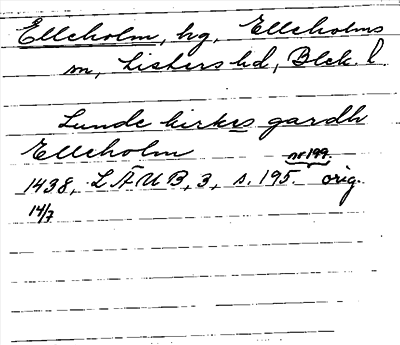 Elleholm, hg, Elleholms
sn, Listers hd, Blek. l.
Lunde kirkes gardh
Elleholm
nr 199.
1438, LAUB, 3, s. 195. orig.
14/7